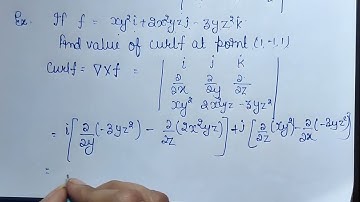 Ex. If f = xy²i + 2x²yzj - 3yz²k
And value of curlf at point (1,-1,1)
Curlf = ∇Xf = | i j k |
| ∂/∂x ∂/∂y ∂/∂z |
| xy² 2x²yz -3yz² |
= i[∂/∂y(-3yz²) - ∂/∂z(2x²yz)] + j[∂/∂z(xy²) - ∂/∂x(-3yz²)]
=